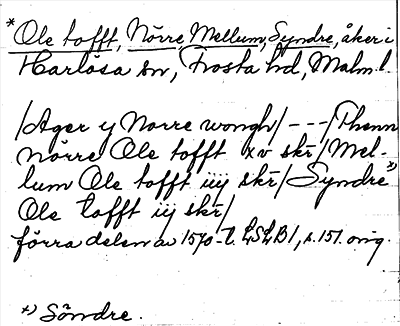 * Ole tofft, Nörre, Mellum, Syndre, åker i
Harlösa sn, Frosta hd, Malm. l.
/Ager y Norre wongh/ - - - /Thenn
nörre Ole tofft xv skr/ Mel-
lum Ole tofft iiij skr/ Syndre *)
Ole tofft iij skr/
förra delen av 1570-t. LSLB1, s. 151. orig.
*) Söndre.